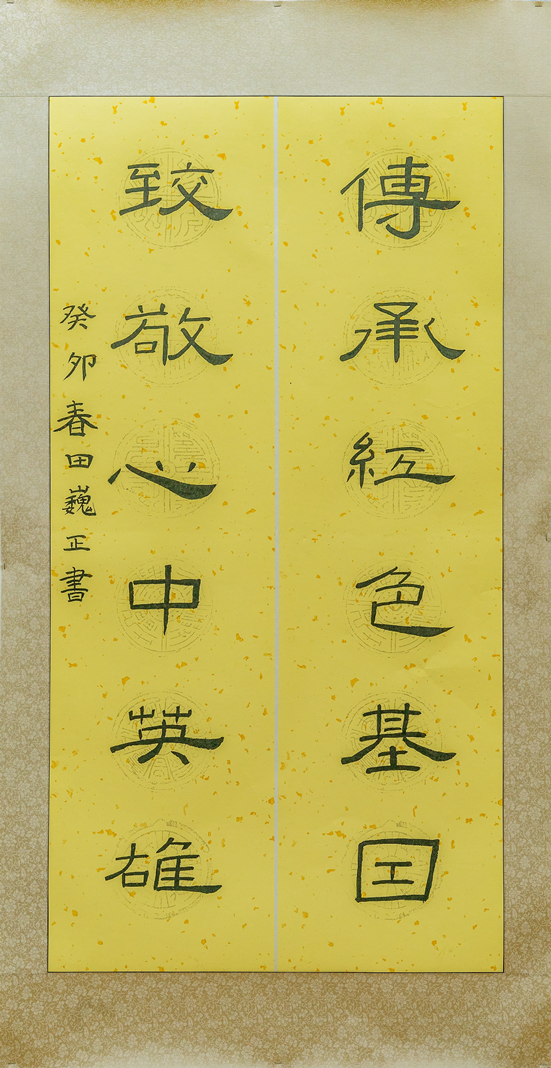 傳承紅色基因
致敬心中英雄
癸卯春田巍正書